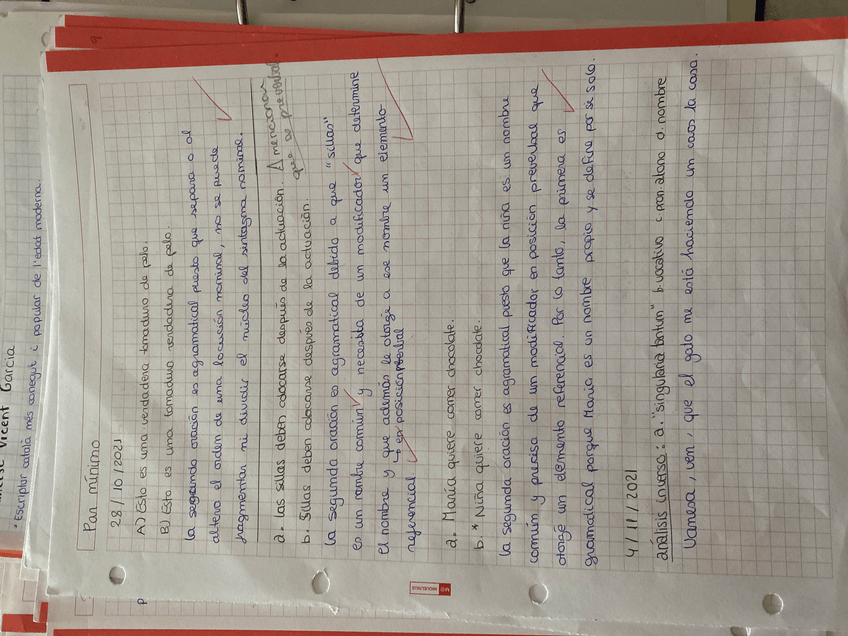 Vicent Garcia
· Escriptor català més conegut i popular de l'edat moderna.
9
P
Par mínimo
28/10/2021
A) Esto es una verdadera tomadura de pelo.
B) Esto es una tomadura verdadera de pelo.
la segunda oración es agramatical puesto que separa o al
altera el orden de una locución nominal, no se puede
fragmentar ni dividir el núcleo del sintagma nominal.
a. Las sillas deben colocarse después de la actuación.
A mencionar
que es preverbal
b. Sillas deben colocarse después de la actuación.
la segunda oración es agramatical debido a que "sillas"
es un nombre común y necesita de un modificador que determine
el nombre y que además le otorgé a ese nombre un elemento
referencial
↳ en posición preverbal
a. María quiere comer chocolate.
b. * Niña quiere comer chocolate.
la segunda oración es agramatical puesto que la niña es un nombre
común y precisa de un modificador en posición preverbal que
otorgé un elemento referencial. Por lo tanto, la primera es
gramatical porque María es un nombre propio y se define por sí solo.
4/11/2021
análisis inverso: a. "singularia tantum" b. vocativo c. pron. átono d. nombre
Vanesa, ven, que el gato me está haciendo un caos la casa.
MIQUELRIUS